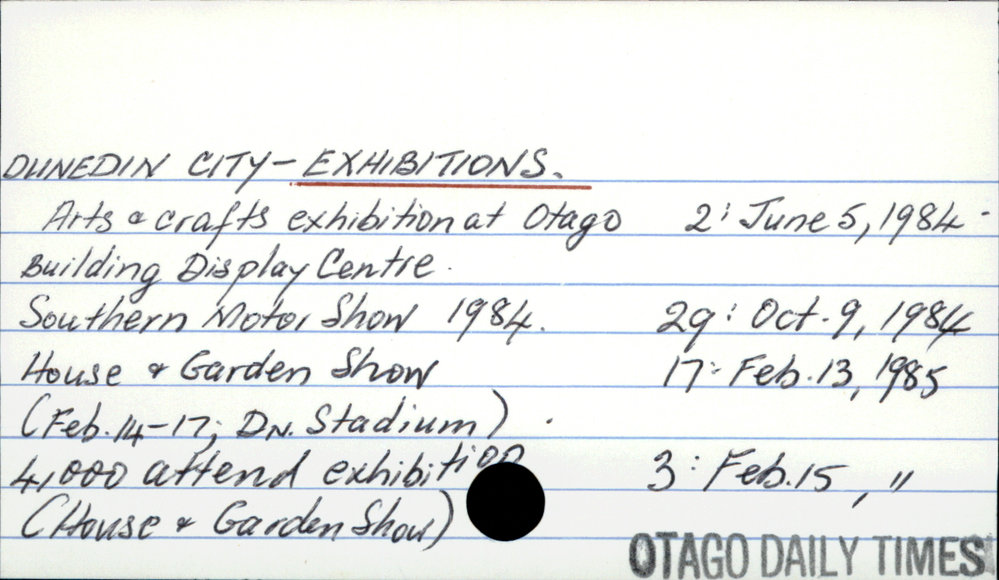 DUNEDIN CITY - EXHIBITIONS.
Arts & crafts exhibition at Otago 2: June 5, 1984.
Building Display Centre.
Southern Motor Show 1984. 29: Oct. 9, 1984
House & Garden Show 17: Feb. 13, 1985
(Feb. 14-17; DN. Stadium).
4,000 attend exhibition 3: Feb. 15, "
(House & Garden Show)
OTAGO DAILY TIMES